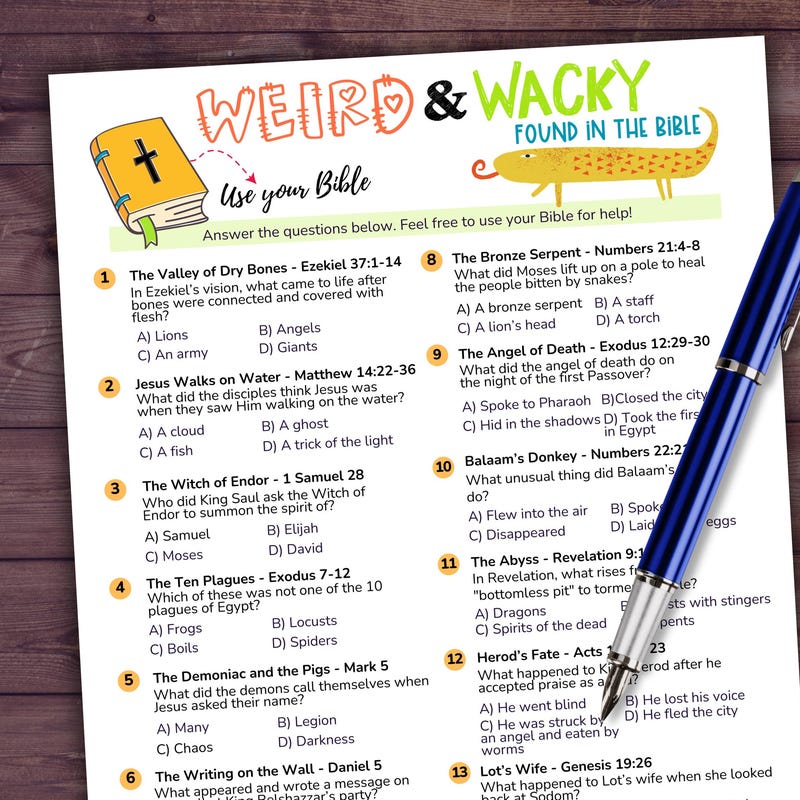 WEIRD & WACKY
FOUND IN THE BIBLE
Use your Bible
Answer the questions below. Feel free to use your Bible for help!
1 The Valley of Dry Bones - Ezekiel 37:1-14
In Ezekiel's vision, what came to life after
bones were connected and covered with
flesh?
A) Lions B) Angels
C) An army D) Giants
2 Jesus Walks on Water - Matthew 14:22-36
What did the disciples think Jesus was
when they saw Him walking on the water?
A) A cloud B) A ghost
C) A fish D) A trick of the light
3 The Witch of Endor - 1 Samuel 28
Who did King Saul ask the Witch of
Endor to summon the spirit of?
A) Samuel B) Elijah
C) Moses D) David
4 The Ten Plagues - Exodus 7-12
Which of these was not one of the 10
plagues of Egypt?
A) Frogs B) Locusts
C) Boils D) Spiders
5 The Demoniac and the Pigs - Mark 5
What did the demons call themselves when
Jesus asked their name?
A) Many B) Legion
C) Chaos D) Darkness
6 The Writing on the Wall - Daniel 5
What appeared and wrote a message on
King Belshazzar's party?
8 The Bronze Serpent - Numbers 21:4-8
What did Moses lift up on a pole to heal
the people bitten by snakes?
A) A bronze serpent B) A staff
C) A lion's head D) A torch
9 The Angel of Death - Exodus 12:29-30
What did the angel of death do on
the night of the first Passover?
A) Spoke to Pharaoh B)Closed the city
C) Hid in the shadows D) Took the
in Egypt
10 Balaam's Donkey - Numbers
What unusual thing did Balaam's
do?
A) Flew into the air B)
C) Disappeared D) Laid eggs
11 The Abyss - Revelation
In Revelation, what rises
"bottomless pit" to
A) Dragons with stingers
C) Spirits of the dead
12 Herod's Fate - Acts 23
What happened to after he
accepted praise as a
A) He went blind B) He lost his voice
C) He was struck by D) He fled the city
an angel and eaten by
worms
13 Lot's Wife - Genesis 19:26
What happened to Lot's wife when she looked
back at Sodom?